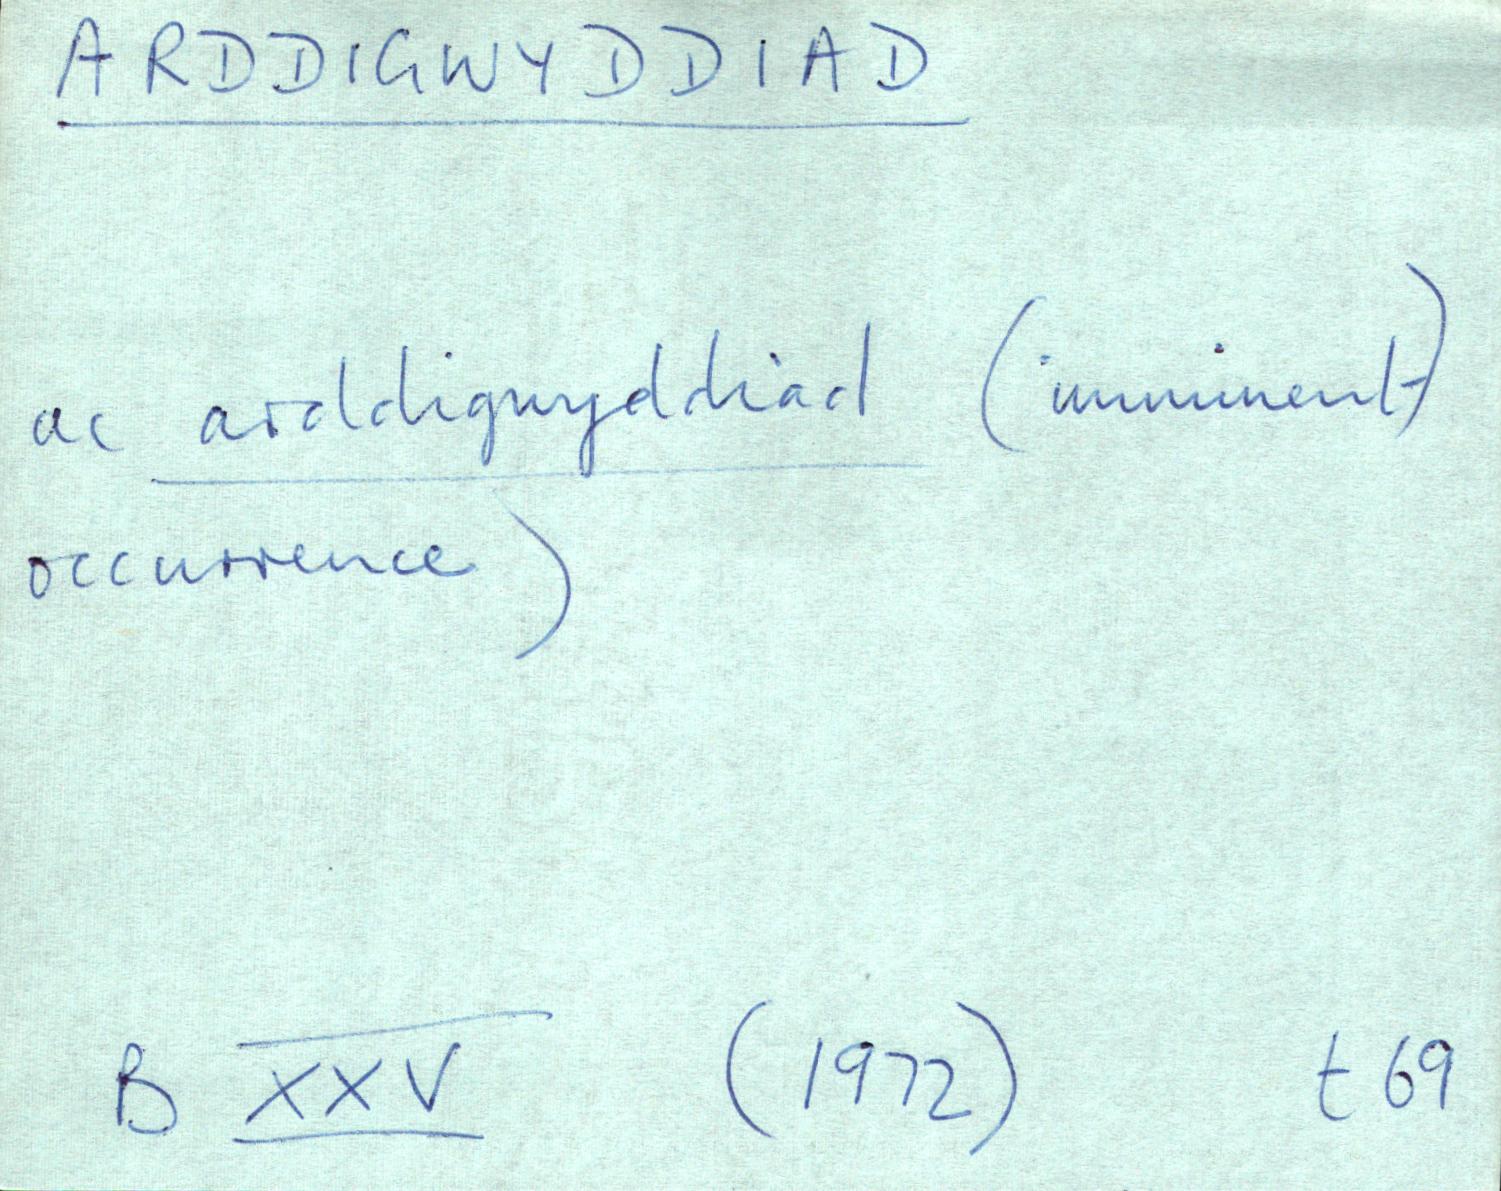 ARDDIGWYDDIAD
ac arddigwyddiad (imminent)
occurrence)
B XXV (1972) t 69